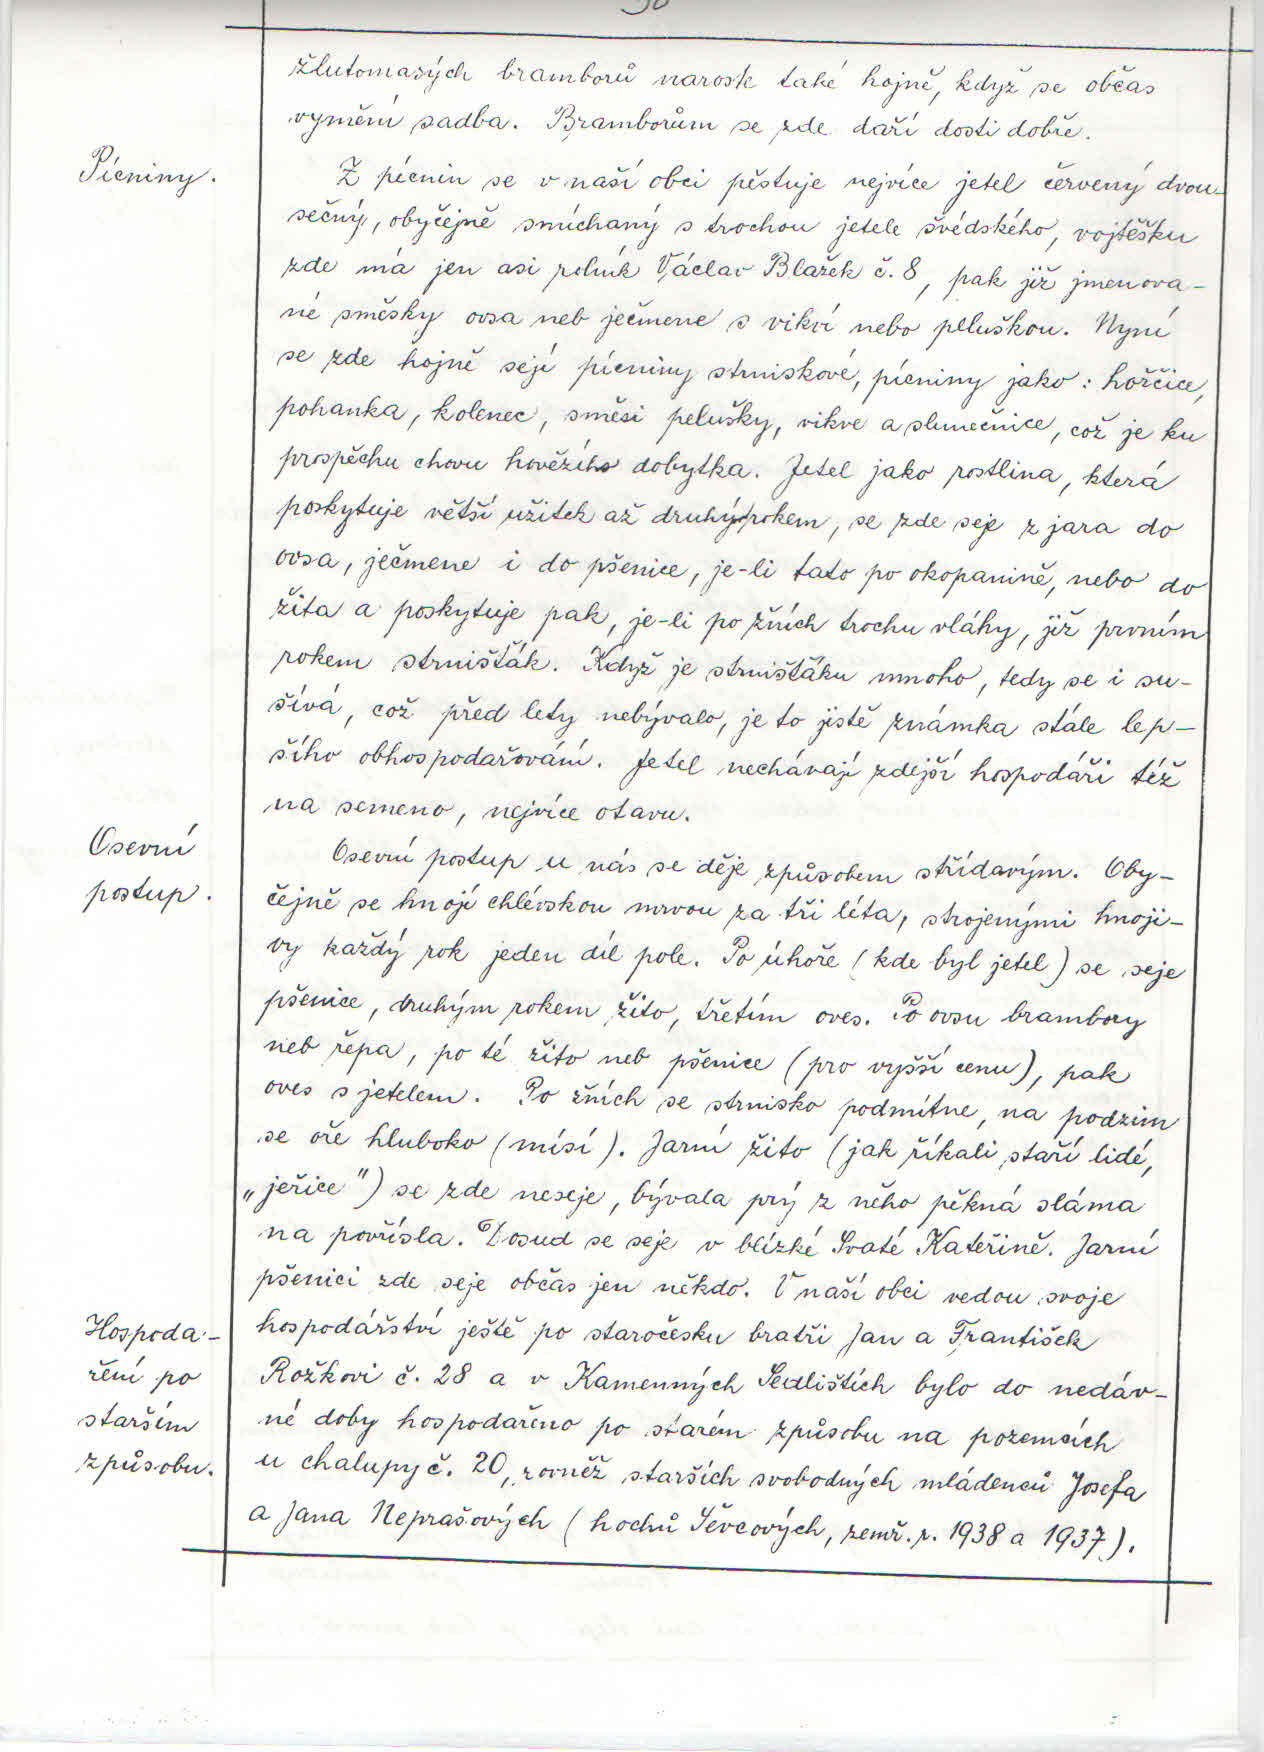 žlutomasých bramborů naroste také hojně, když se občas
vymění sadba. Bramborům se zde daří dosti dobře.
Pícniny.
Z pícnin se v naší obci pěstuje nejvíce jetel červený dvou-
sečný, obyčejně smíchaný s trochou jetele švédského, vojtěšku
zde má jen asi rolník Václav Blažek č. 8, pak již jmenova-
né směsky ovsa neb ječmene s vikví nebo peluškou. Nyní
se zde hojně sejí pícniny strniskové, pícniny jako: hořčice,
pohanka, kolenec, směsi pelušky, vikve a slunečnice, což je ku
prospěchu chovu hovězího dobytka. Jetel jako rostlina, která
poskytuje větší užitek až druhým rokem, se zde seje z jara do
ovsa, ječmene i do pšenice, je-li tato po okopanině, nebo do
žita a poskytuje pak, je-li po žních trochu vláhy, již prvním
rokem strnišťák. Když je strnišťáku mnoho, tedy se i su-
šívá, což před lety nebývalo, je to jistě známka stále lep-
šího obhospodařování. Jetel nechávají zdejší hospodáři též
na semeno, nejvíce otavu.
Osevní
postup.
Osevní postup u nás se děje způsobem střídavým. Oby-
čejně se hnojí chlévskou mrvou za tři léta, strojenými hnoji-
vy každý rok jeden díl pole. Po úhoře (kde byl jetel) se seje
pšenice, druhým rokem žito, třetím oves. Po ovsu brambory
neb řepa, po té žito neb pšenice (pro vyšší cenu), pak
oves s jetelem. Po žních se strnisko podmítne, na podzim
se oře hluboko (mísí). Jarní žito (jak říkali staří lidé,
„jeřice") se zde neseje, bývala prý z něho pěkná sláma
na povřísla. Dosud se seje v blízké Svaté Kateřině. Jarní
pšenici zde seje občas jen někdo. V naší obci vedou svoje
Hospoda-
ření po
starším
způsobu.
hospodářství ještě po staročesku bratři Jan a František
Rožkovi č. 28 a v Kamenných Sedlištích bylo do nedáv-
né doby hospodařeno po starém způsobu na pozemcích
u chalupy č. 20, rovněž starších svobodných mládenců Josefa
a Jana Neprašových (hochů Ševcových, zemř. r. 1938 a 1937).